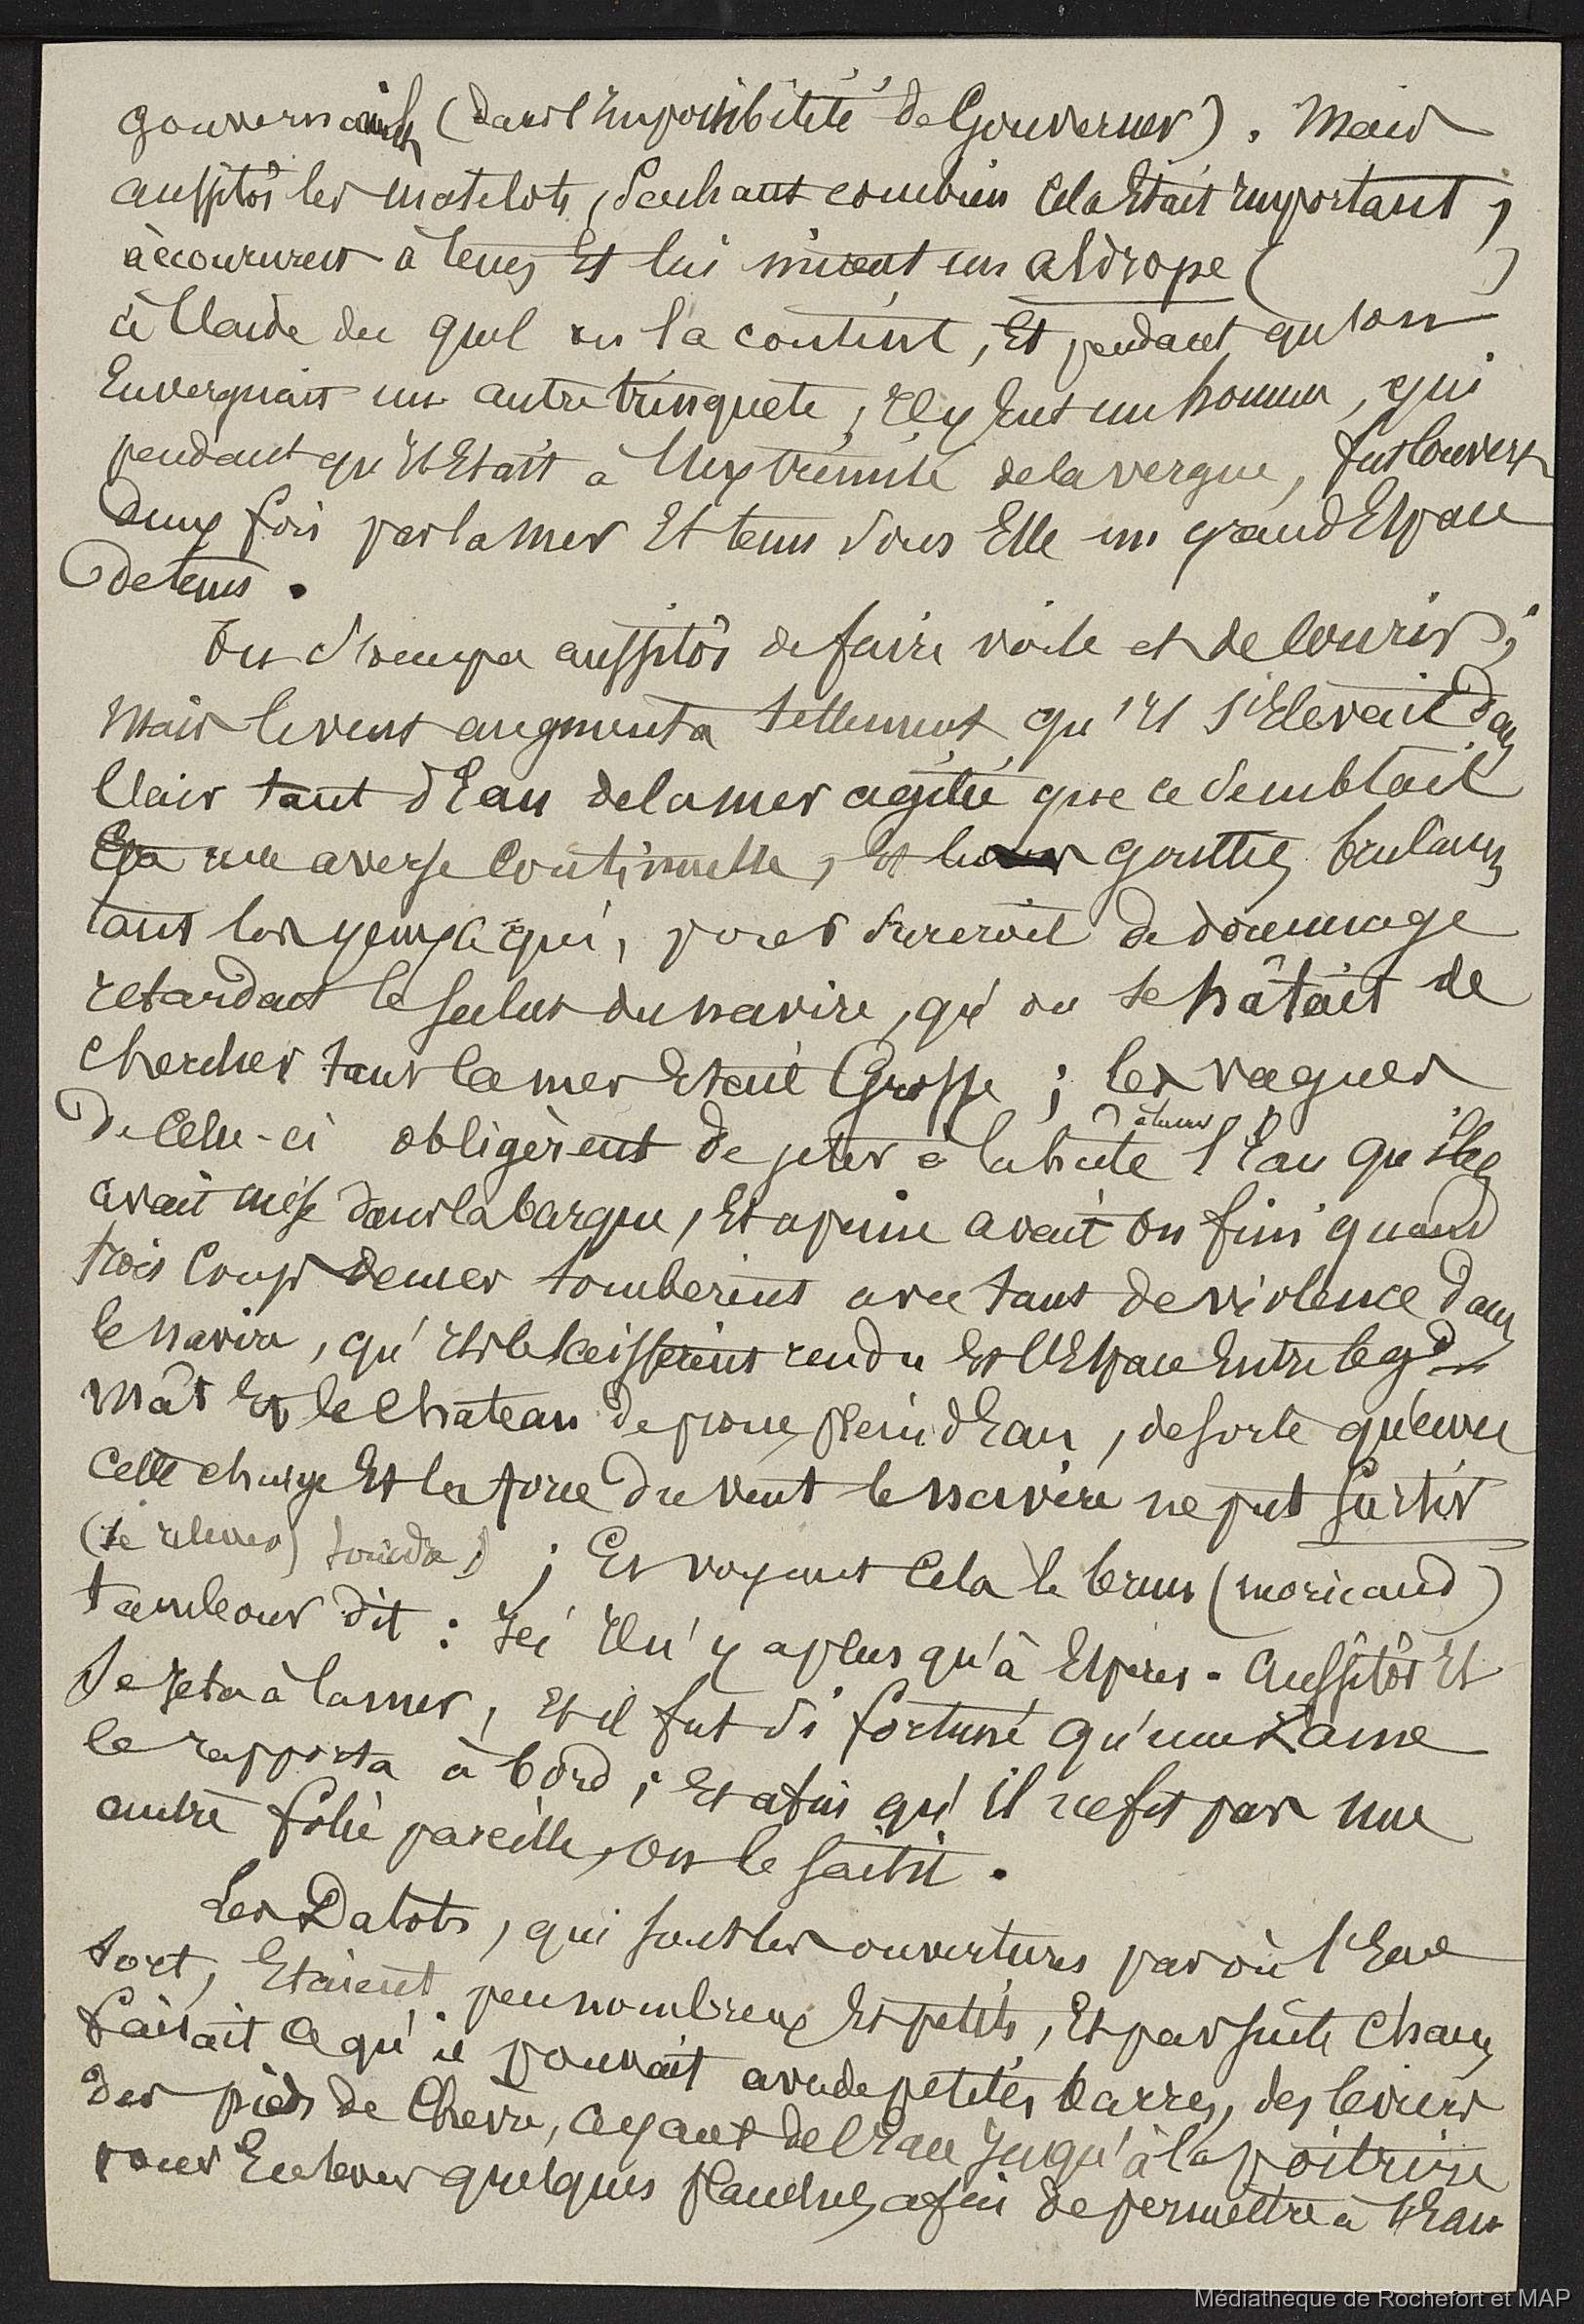 gouvernait (dans l'impossibilité de Gouverner). Mais
aussitôt les matelots, sachant combien cela était important,
accoururent à tems et lui mirent un aldrope (          )
à l'aide du quel on l'a contint, Et pendant qu'on
Enverguait un autre trinquete, Il y Eut un homme, qui
pendant qu'il Etait à l'extrémité de la vergue, fut couvert
deux fois par la mer Et tenu sous Elle un grand Espace
de tems.
On s'occupa aussitôt de faire voile et de courir;
Mais le vent augmenta tellement qu'il s'Elevait dans
l'air tant d'Eau de la mer agitée que ce semblait
une averse Continuelle, et les gouttes brulaient
tant les yeux ce qui, pour surcroit de dommage
retardait le salut du navire, qu'on se hâtait de
chercher tant la mer Etait Grosse; les vagues
De Celle-ci obligèrent de jeter à la hâte l'Eau qu'elles
avait mise dans la barque, Et a peine avait on fini quand
trois coups de mer tomberent avec tant de violence dans
le navire, qu'ils le laisserent rendu Et l'Espace Entre le gd
Mât Et le Chateau de proue plein d'Eau, de sorte qu'avec
Cette charge Et la force du vent le navire ne put Surtir
(se relever) ; Et voyant Cela le brun (moricaud)
tambour dit : Ici Il n'y a plus qu'à Espérer. Aussitôt Il
se jeta à la mer, Et il fut si fortuné qu'une Lame
le rapporta à bord; Et afin qu'il ne fit pas une
autre folie pareille, On le saisit.
Les Dalots, qui sont les ouvertures par où l'Eau
sort, Etaient peu nombreux Et petits, Et par suite Chacun
faisait ce qu'il pouvait avec de petites barres, des leviers
des pieds de Chèvre, ayant de l'Eau jusqu'à la poitrine
pour Enlever quelques planches, afin de permettre à l'Eau
Médiathèque de Rochefort et MAP